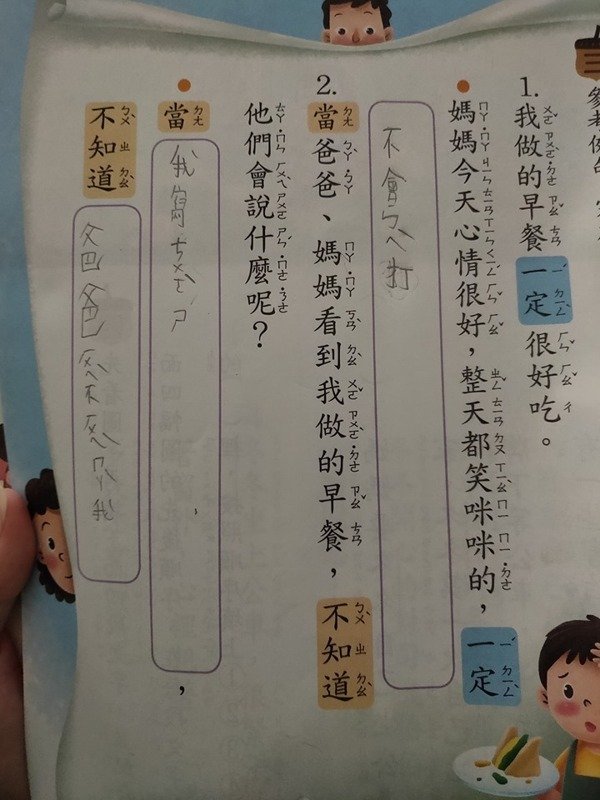 1.我做的早餐一定很好吃。
媽媽今天心情很好，整天都笑咪咪的，一定
不會ㄅㄟˋ打
2.當爸爸、媽媽看到我做的早餐，不知道
他們會說什麼呢？
當
我寫ㄘㄨㄛˋㄕ，
，
不知道
爸爸ㄏㄨㄟˋ不ㄏㄨㄟˋㄇㄚˋ我